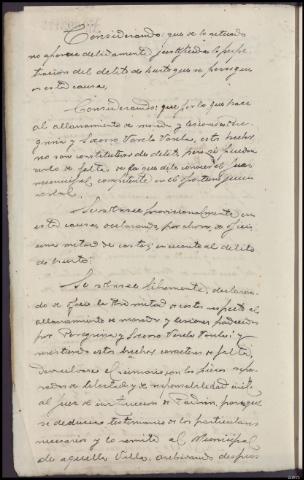 Considerando: que de lo actuado
no aparece debidamente justificada la perpe-
tración del delito de hurto que se persigue
en esta causa,
Considerando: que por lo que hace
al allanamiento de morada y lesiones á Pere-
grina y Socorro Varela Varela, estos hechos
no son constitutivos de delito, pero si pueden
serlo de falta, de la que debe conocer el Juez
municipal competente en el oportuno juicio
verbal.
Se sobresee provisionalmente en
esta causa, declarando, por ahora, de ofi-
cio una mitad de costas, en cuanto al delito
de hurto:
Se sobresee libremente, declaran-
do de oficio la otra mitad de costas respecto al
allanamiento de morada y lesiones padecidas
por Peregrina y Socorro Varela Varela; y
revistiendo estos hechos caracteres de falta,
devuélvase el sumario con las piezas sepa-
radas de libertad y de responsabilidad civil
al Juez de instrucción de Padrón, para que
se deduzca testimonio de los particulares
necesarios y lo remita al Municipal
de aquella Villa, archivando después